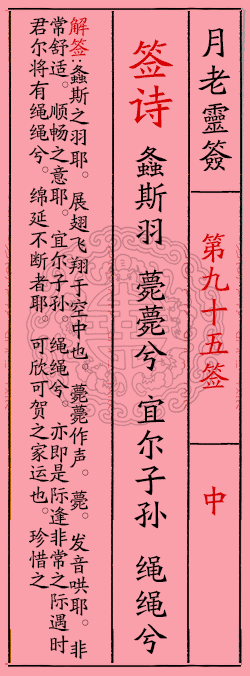 月老靈簽
第九十五签
中
签诗
螽斯羽 薨薨兮 宜尔子孙 绳绳兮
解签:螽斯之羽耶。展翅飞翔于空中也。薨薨作声。薨。发音哄耶。非
常舒适。顺畅之意耶。宜尔子孙。绳绳兮。亦即是际逢非常之际遇时
君尔将有绳绳兮。绵延不断者耶。可欣可贺之家运也。珍惜之